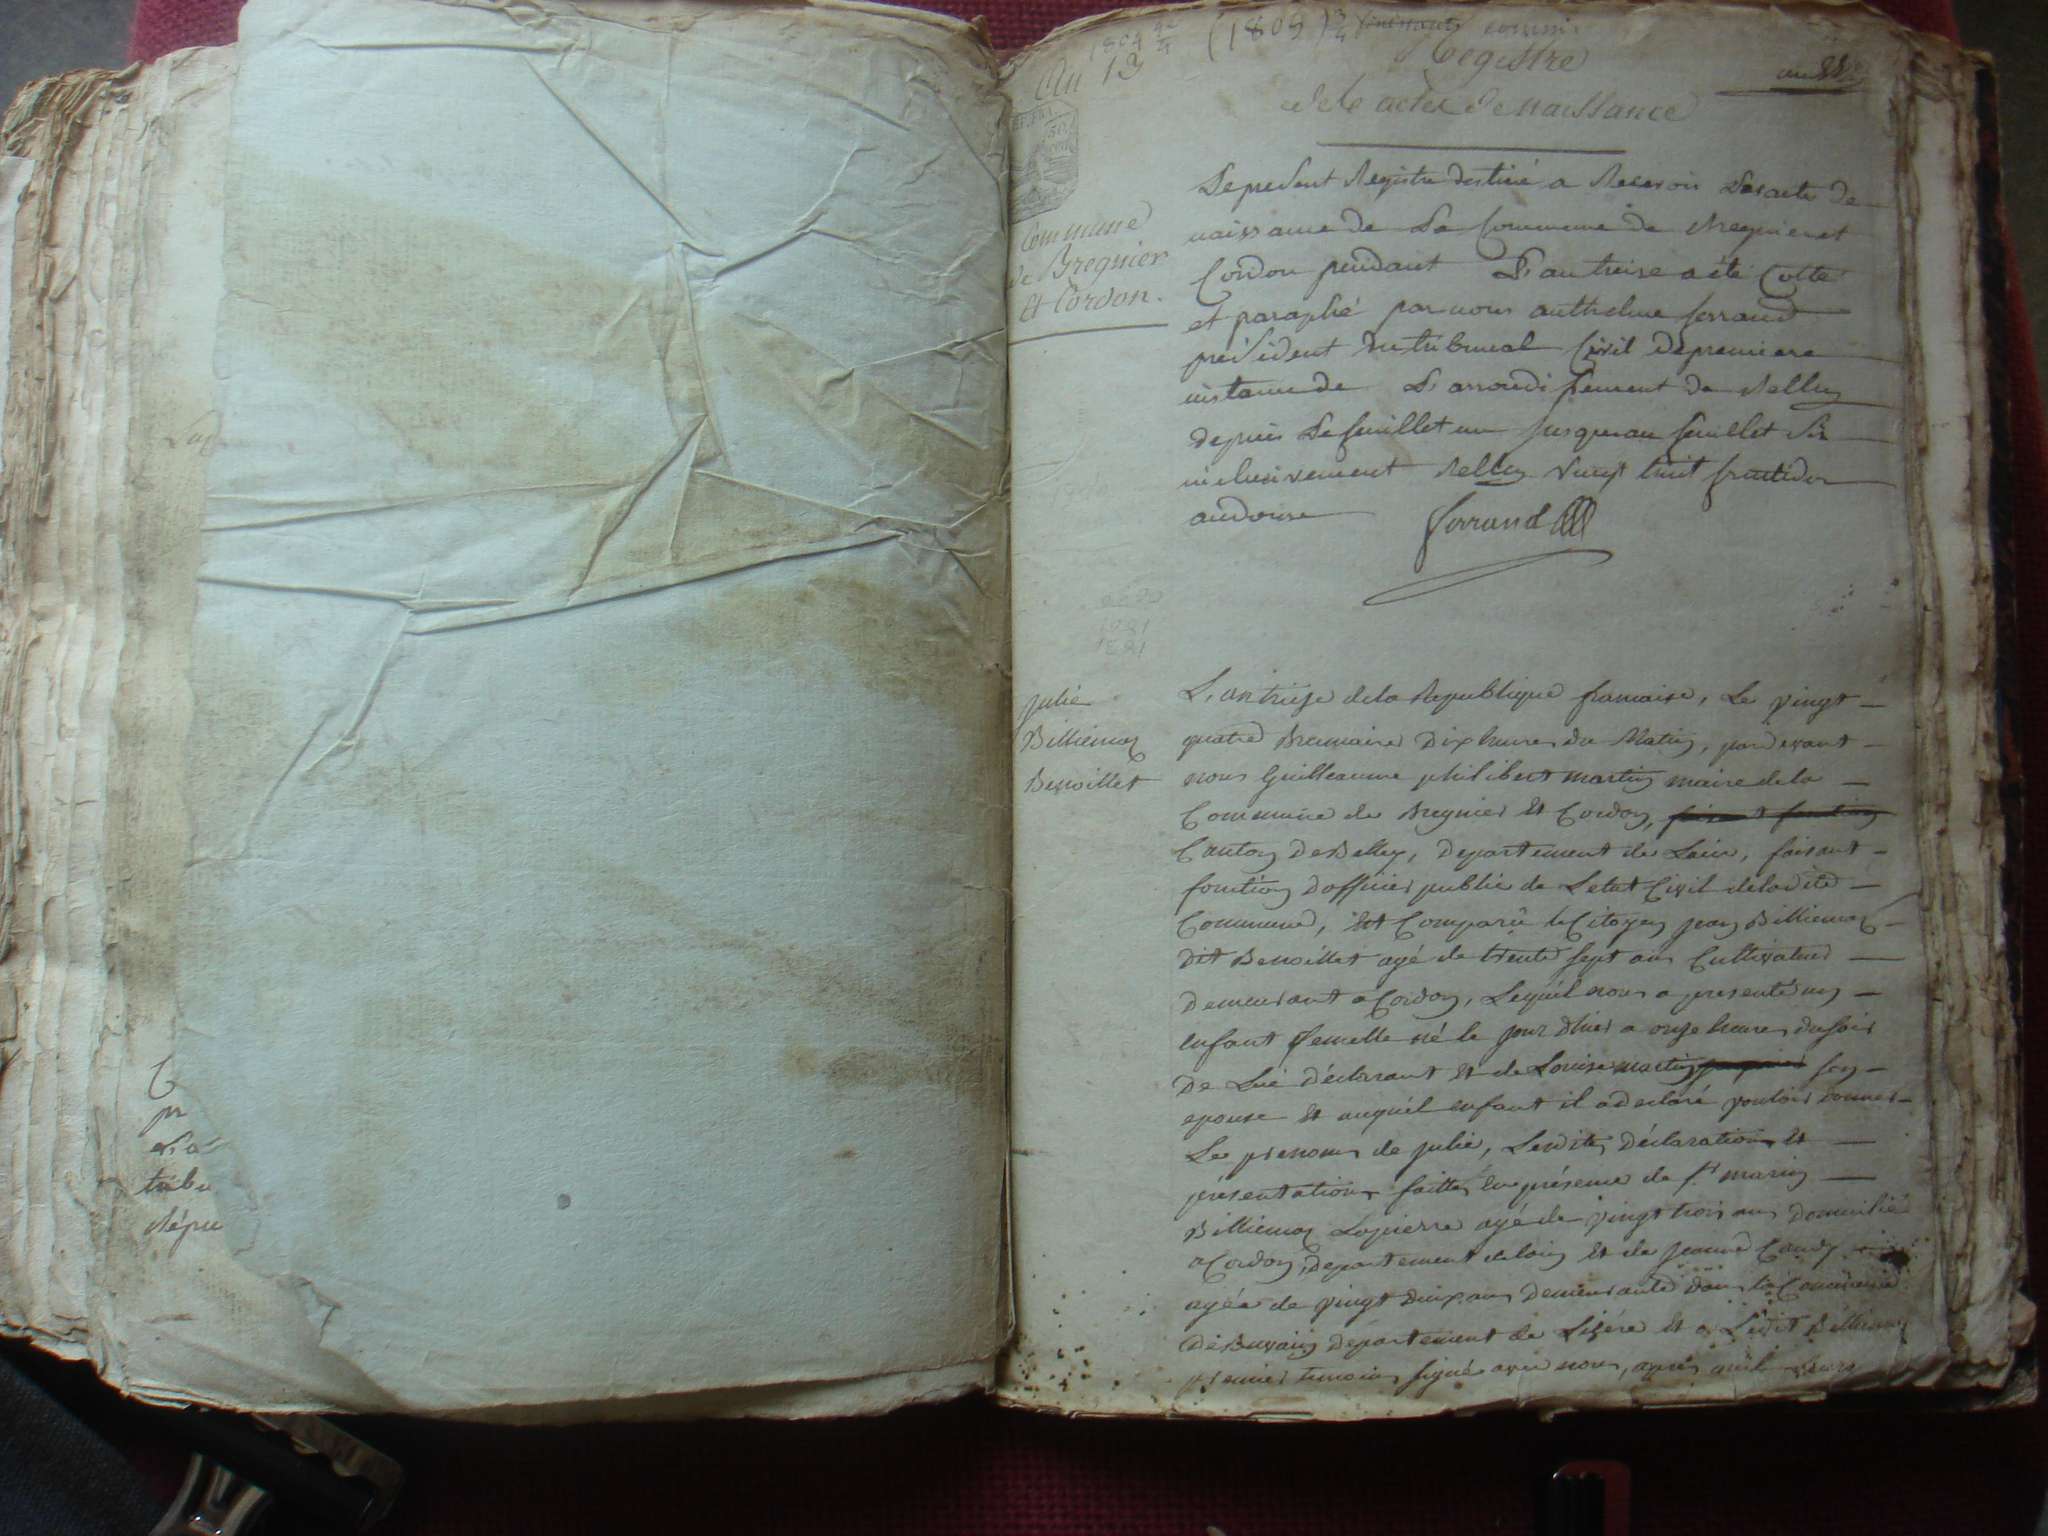 1804
An 13
(1805)
Registre
de le actes de naissance
Commune
de Bregnier
et Cordon.
Le present Registre destiné a Recevoir Les acte de
naissance de La Commune de Bregnier et
Cordon pendant L'an treise a été Cotté
et paraphé par nous anthelme ferrand
president du tribunal Civil de premiere
instance de L'arrondissement de Belley
depuis Le feuillet un jusquau feuillet Six
inclusivement Belley vingt huit fructidor
an douse
ferrand
julie
Billiemaz
Benoillet
L'an treize de la Republique francaise, Le vingt
quatre Brumaire Dix heures du Matin, pardevant
nous Guilleaume philibert martin maire de la
Commune de Bregnier et Cordon,
Canton de Belley, departement de Lain, faisant
fonction d'officier public de Letat Civil de ladite
Commune, est Comparu le Citoyen jean Billiemaz
dit Benoillet agé de trente sept ans Cultivateur
demeurant a Cordon, Lequel nous a presenté un
enfant femelle né le jour d'hier a onze heures du soir
De Lui déclarant et de Louise martin son
epouse et auquel enfant il a declaré vouloir donner
Le prenom de julie, Lesdites déclaration et
présentation faittes en présence de marin
Billiemaz Lapierre agé de vingt trois ans domicilié
a Cordon, departement de lain et de jeanne Candy
agée de vingt deux ans demeurante dans la Commune
departement de Lisére et a Ledit Billiemaz
premier temoin signé avec nous, apres
L'a
tribu
Répu